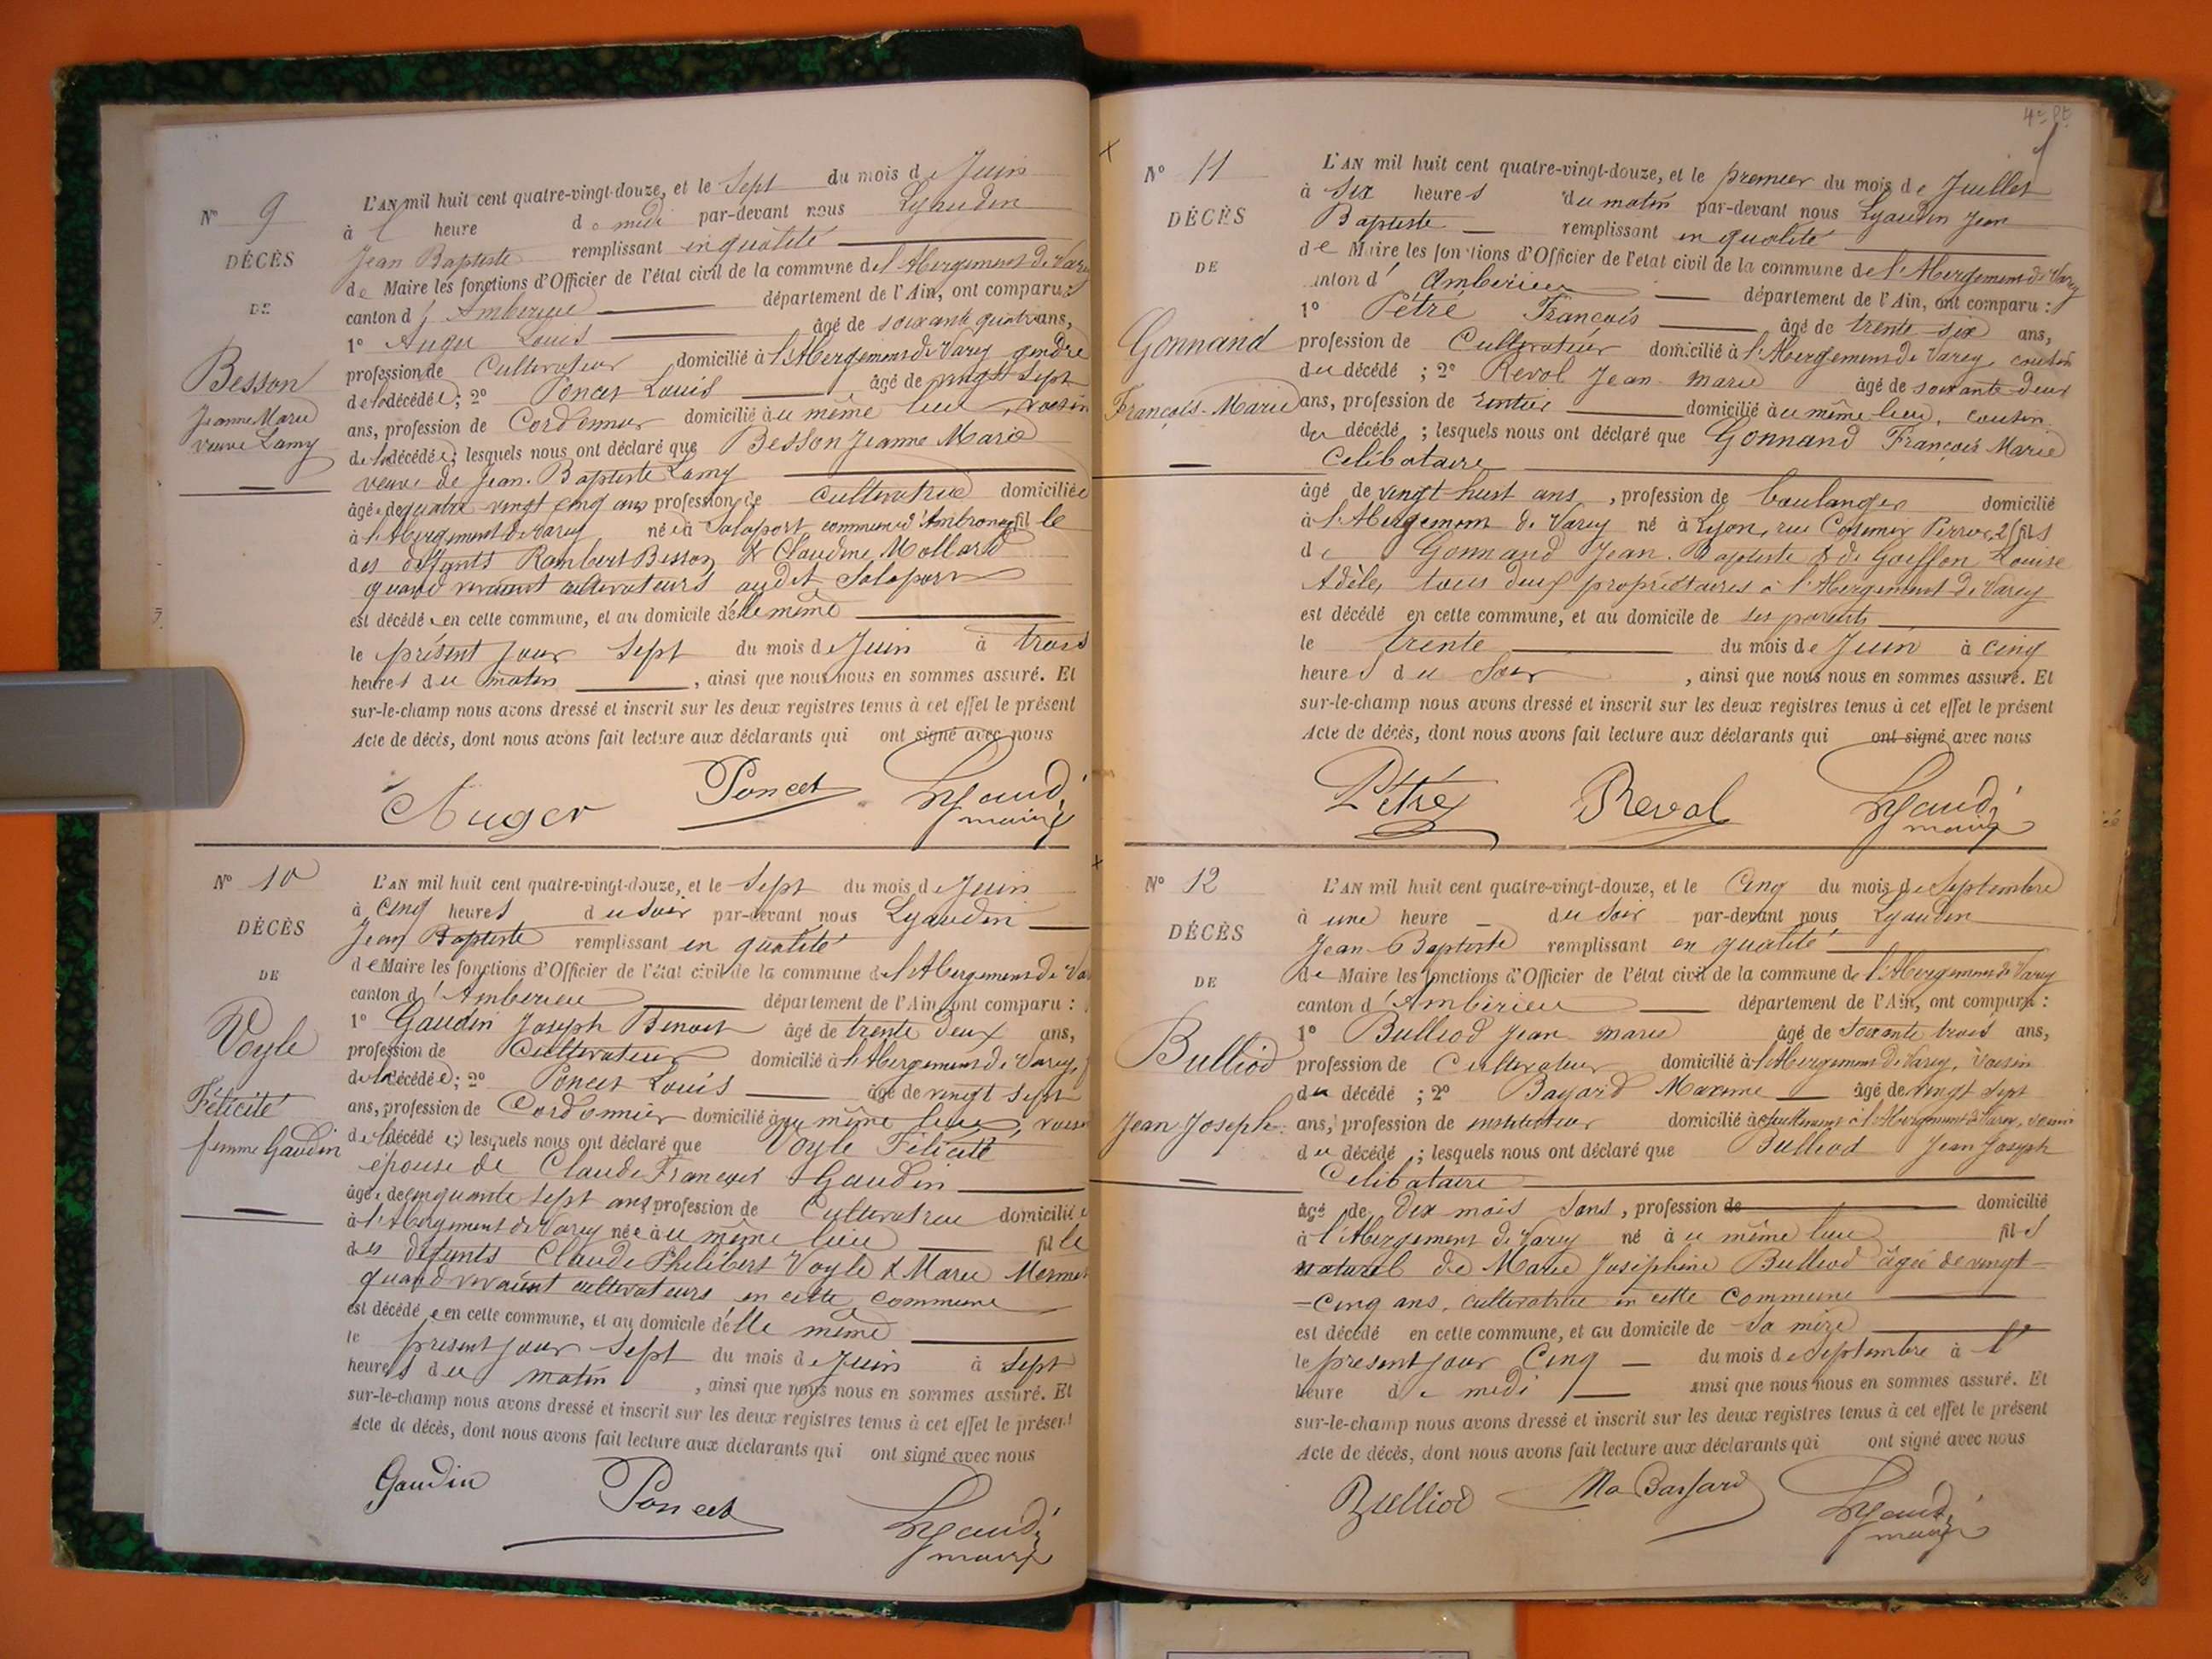 N° 9
DÉCÈS
DE
Besson
Jeanne Marie
veuve Lamy
L'AN mil huit cent quatre-vingt-douze, et le Sept du mois de Juin
à 1 heure de midi par-devant nous Lyaudin
Jean Baptiste remplissant en qualité
de Maire les fonctions d'Officier de l'état civil de la commune de l'Abergement de Varey
canton d'Amberieu département de l'Ain, ont comparu :
1° Auger Louis âgé de soixante quatre ans,
profession de Cultivateur domicilié à l'Abergement de Varey gendre
de la décédée ; 2° Poncet Louis âgé de vingt sept
ans, profession de Cordonnier domicilié au même lieu, voisin
de la décédée ; lesquels nous ont déclaré que Besson Jeanne Marie
veuve de Jean-Baptiste Lamy
âgée de quatre vingt cinq ans profession de cultivatrice domiciliée
à l'Abergement de Varey née à Salaport commune d'Ambronay fille
des défunts Rambert Besson & Claudine Mollard
quand vivaient cultivateurs audit Salaport
est décédée en cette commune, et au domicile d'elle même
le présent jour Sept du mois de Juin à trois
heures du matin, ainsi que nous nous en sommes assuré. Et
sur-le-champ nous avons dressé et inscrit sur les deux registres tenus à cet effet le présent
Acte de décès, dont nous avons fait lecture aux déclarants qui ont signé avec nous
Auger Poncet Lyaudin
maire
N° 10
DÉCÈS
DE
Voyle
Félicité
femme Gaudin
L'AN mil huit cent quatre-vingt-douze, et le Sept du mois de Juin
à cinq heures du soir par-devant nous Lyaudin
Jean Baptiste remplissant en qualité
de Maire les fonctions d'Officier de l'état civil de la commune de l'Abergement de Va
canton d'Amberieu département de l'Ain, ont comparu :
1° Gaudin Joseph Benoit âgé de trente deux ans,
profession de Cultivateur domicilié à l'Abergement de Varey,
de la décédée ; 2° Poncet Louis âgé de vingt sept
ans, profession de Cordonnier domicilié au même lieu, voisin
de la décédée ; lesquels nous ont déclaré que Voyle Félicité
épouse de Claude François Gaudin
âgée de cinquante sept ans profession de Cultivatrice domiciliée
à l'Abergement de Varey née au même lieu fille
des défunts Claude Philibert Voyle & Marie Mermet
quand vivaient cultivateurs en cette commune
est décédée en cette commune, et au domicile d'elle même
le présent jour Sept du mois de Juin à sept
heures du matin, ainsi que nous nous en sommes assuré. Et
sur-le-champ nous avons dressé et inscrit sur les deux registres tenus à cet effet le présent
Acte de décès, dont nous avons fait lecture aux déclarants qui ont signé avec nous
Gaudin Poncet Lyaudin
maire
N° 11
DÉCÈS
DE
Gonnand
François-Marie
L'AN mil huit cent quatre-vingt-douze, et le premier du mois de Juillet
à six heures du matin par-devant nous Lyaudin Jean
Baptiste remplissant en qualité
de Maire les fonctions d'Officier de l'état civil de la commune de l'Abergement de Varey
canton d'Amberieu département de l'Ain, ont comparu :
1° Pétré François âgé de trente-six ans,
profession de Cultivateur domicilié à l'Abergement de Varey, cousin
du décédé ; 2° Revol Jean-Marie âgé de soixante-deux
ans, profession de rentier domicilié au même lieu, cousin
du décédé ; lesquels nous ont déclaré que Gonnand François Marie
Célibataire
âgé de vingt-huit ans, profession de boulanger domicilié
à l'Abergement de Varey né à Lyon, rue Casimir Perrier, 25 fils
de Gonnand Jean-Baptiste & de Goiffon Louise
Adèle, tous deux propriétaires à l'Abergement de Varey
est décédé en cette commune, et au domicile de ses parents
le trente du mois de Juin à cinq
heures du Soir, ainsi que nous nous en sommes assuré. Et
sur-le-champ nous avons dressé et inscrit sur les deux registres tenus à cet effet le présent
Acte de décès, dont nous avons fait lecture aux déclarants qui ont signé avec nous
Pétré Revol Lyaudin
maire
N° 12
DÉCÈS
DE
Bulliod
Jean Joseph
L'AN mil huit cent quatre-vingt-douze, et le Cinq du mois de Septembre
à une heure du soir par-devant nous Lyaudin
Jean-Baptiste remplissant en qualité
de Maire les fonctions d'Officier de l'état civil de la commune de l'Abergement de Varey
canton d'Ambérieu département de l'Ain, ont comparu :
1° Bulliod Jean Marie âgé de soixante trois ans,
profession de Cultivateur domicilié à l'Abergement de Varey, voisin
du décédé ; 2° Bayard Maxime âgé de vingt sept
ans, profession de instituteur domicilié à l'Abergement de Varey, voisin
du décédé ; lesquels nous ont déclaré que Bulliod Jean Joseph
Célibataire
âgé de Dix mois Sans, profession de domicilié
à l'Abergement de Varey né au même lieu fils
naturel de Marie Joséphine Bulliod âgée de vingt-
-cinq ans, cultivatrice en cette commune
est décédé en cette commune, et au domicile de sa mère
le présent jour Cinq du mois de Septembre à 1
heure de midi ainsi que nous nous en sommes assuré. Et
sur-le-champ nous avons dressé et inscrit sur les deux registres tenus à cet effet le présent
Acte de décès, dont nous avons fait lecture aux déclarants qui ont signé avec nous
Bulliod Lyaudin
maire